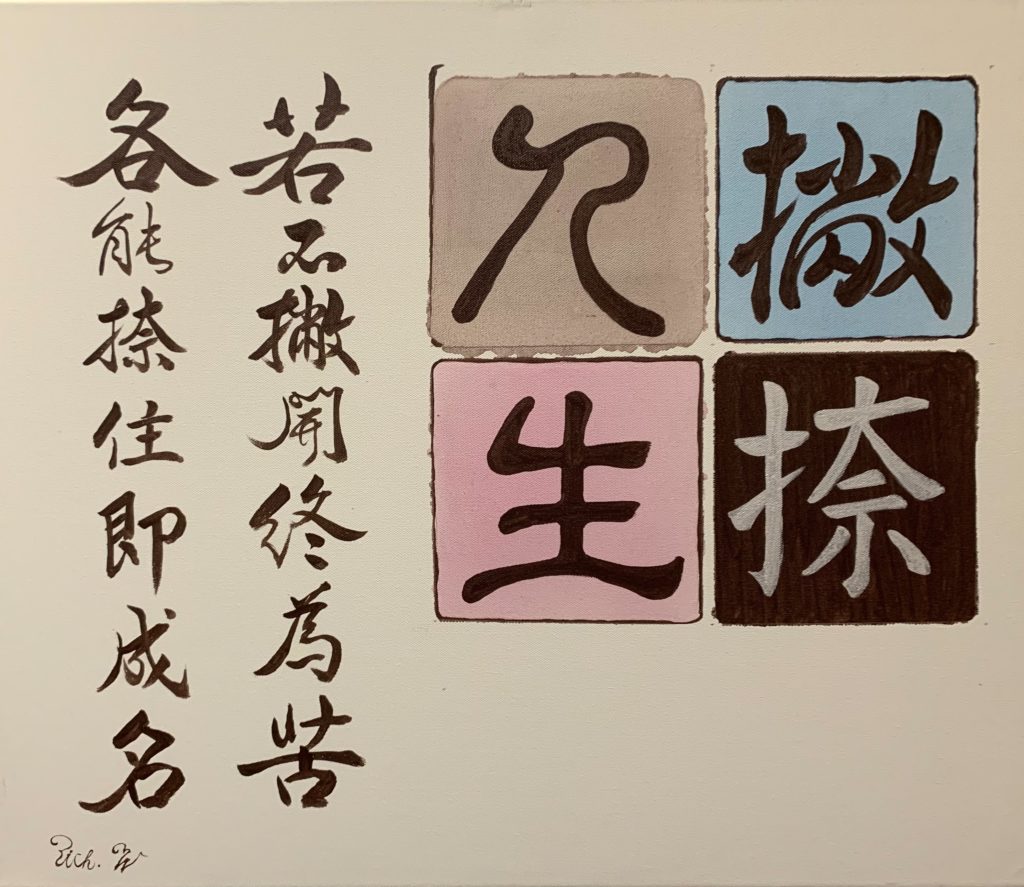 撇捺
人生
若不撇開終為苦
各能捺住即成名